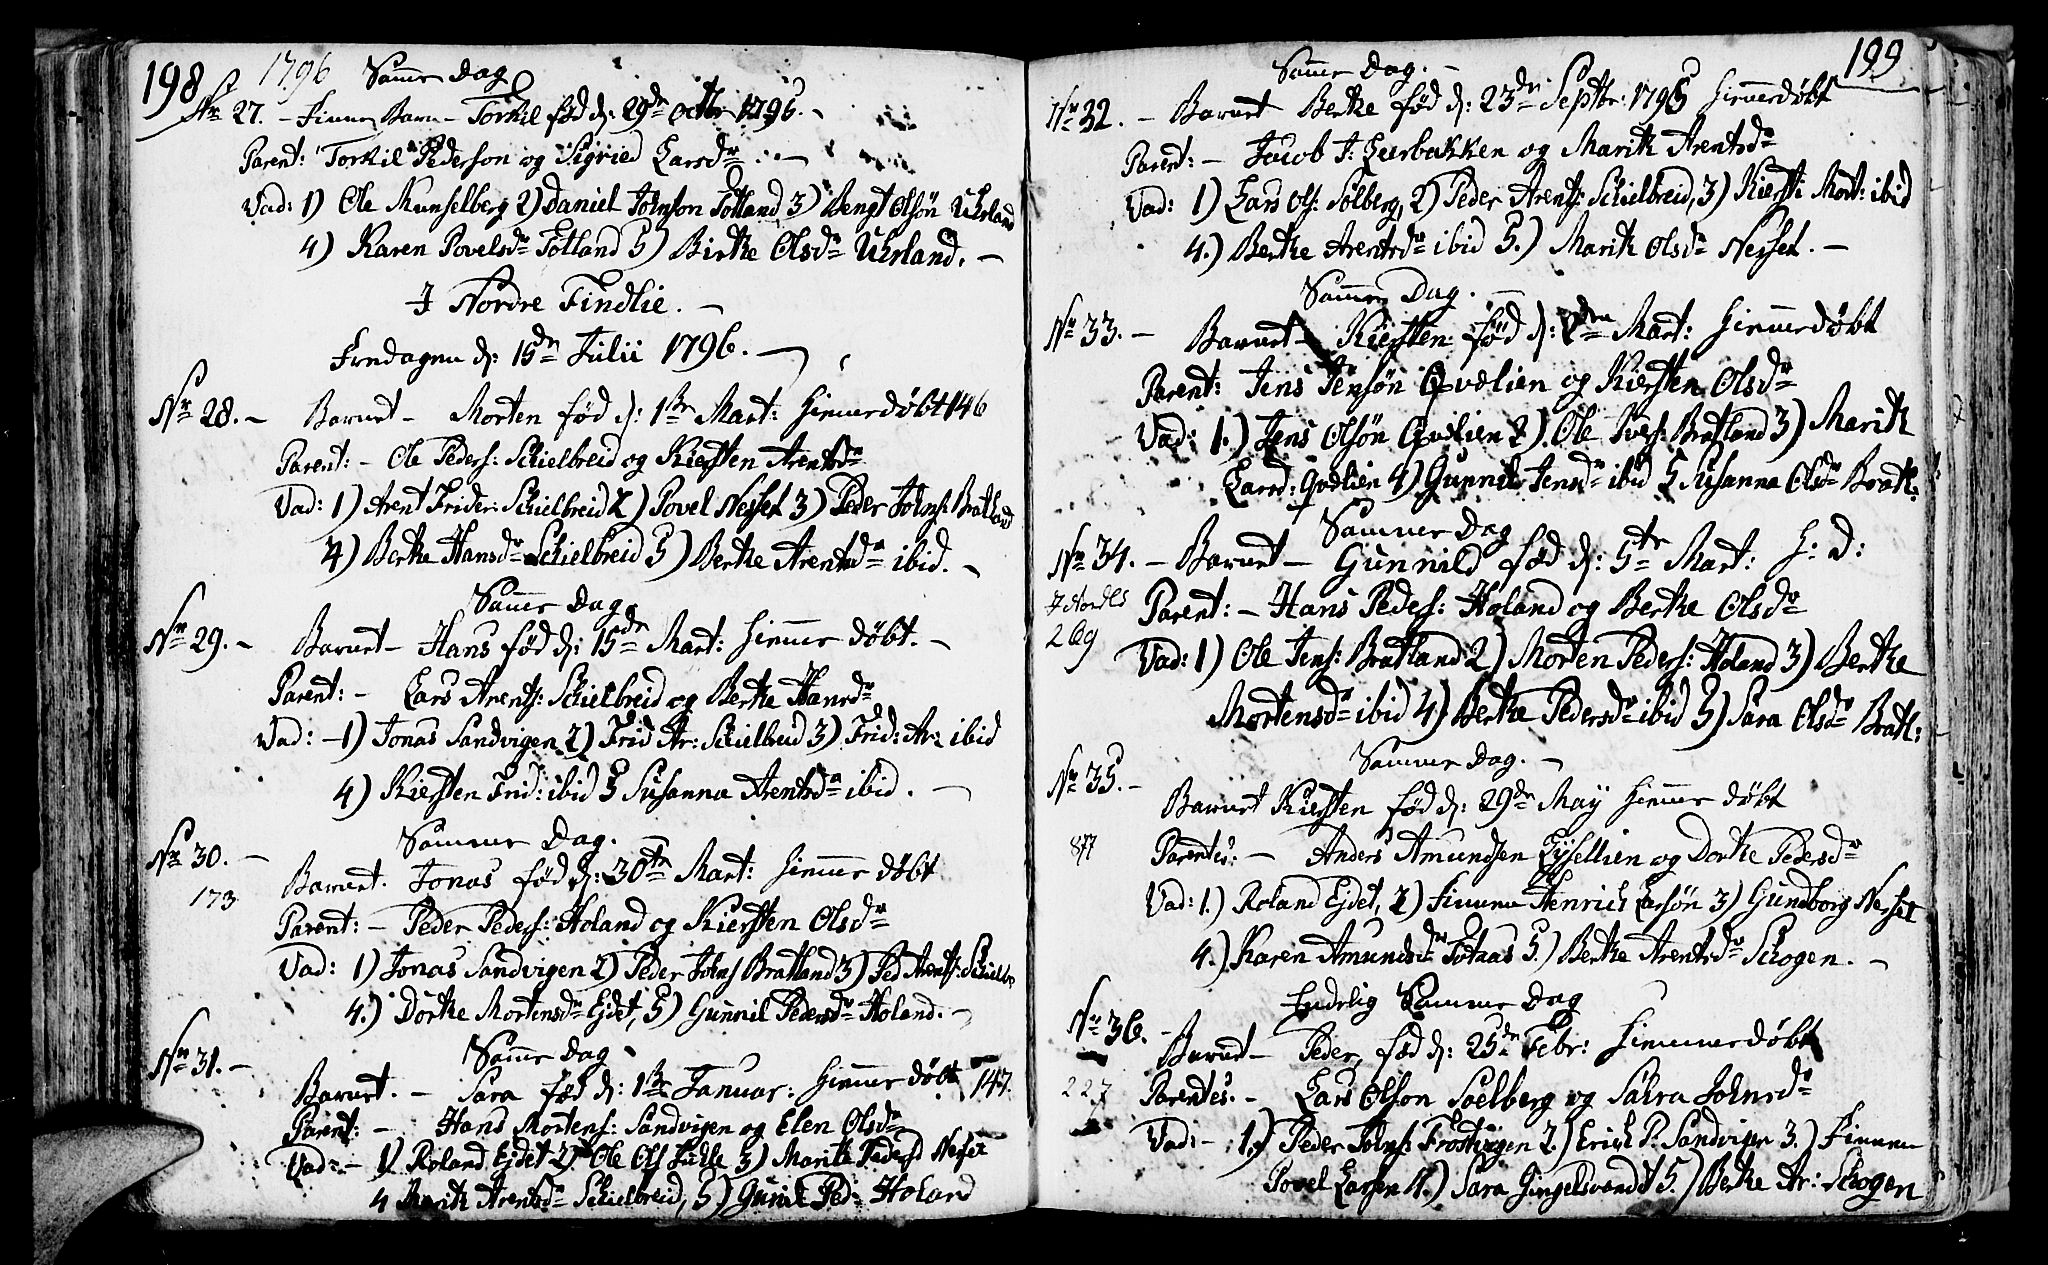 198 1796 Samme Dag
Nr 27. - Finne Barn - Torkil fød d: 29de Octbr 1795. -
Parent: Torkil Pederson og Sigried Larsdr. -
Vad: 1) Ole Kunselberg 2) Daniel Johnson Totland 3) Bengt Olsøn Uhrland
4) Karen Povelsdr Totland 5) Birtke Olsdr Uhrland. -
I Nordre Findlie. -
Fredagen d: 15de Julii 1796. -
Nr 28. - Barnet - Morten fød d: 1ste Mart: hiemmedøbt 146
Parent: - Ole Peders: Schielbreid og Kiersten Arentsdr
Vad: 1) Arent Frider: Schielbreid 2) Povel Nesset 3) Peder Johns: Bratland
4) Berthe Hansdr Schielbreid 5) Berthe Arentsdr ibid. -
Samme Dag
Nr 29. - Barnet - Hans fød d: 15de Mart: hiemme døbt. -
Parent: - Lars Arents: Schielbreid og Berthe Hansdr
Vad: - 1) Jonas Sandvigen 2) Frid Ar: Schielbreid 3) Frid: Ar: ibid
4) Kiersten Frid: ibid 5 Susanna Arentsdr ibid. -
Samme Dag. -
Nr 30. - Barnet. Jonas fød d: 30te Mart: hiemme døbt
173
Parent: - Peder Peders: Holand og Kiersten Olsdr
Vad: 1) Jonas Sandvigen 2) Peder Johns Bratland 3) Ped Arents: Schielbr
4.) Dorthe Mortensdr Ejdet, 5) Gunnil Pedersdr Holand. -
Samme Dag
Nr 31. - Barnet. - Sara fød d: 1ste Januar: hiemme døbt 147.
Parent: - Hans Mortens: Sandvigen og Elen Olsdr
Vad: - 1) Roland Ejdet 2) Ole Ols 3) Marith Pedersd Nesset
4 Marith Arentsdr Schielbreid, 5) Gunil Ped: Holand
199
Samme Dag. -
Nr 32. - Barnet Berthe fød d: 23de Septbr: 1795 hiemmedøbt
Parent: - Jacob J: Leerbakken og Marith Arentsdr
Vad: 1) Lars Ols: Solberg, 2) Peder Arents: Schielbreid, 3) Kiersti Mort: ibid
4.) Berthe Arentsdr ibid 5.) Marith Olsdr Nesset. -
Samme Dag. -
Nr 33. - Barnet - Kiersten fød d: Mart: hiemmedøbt
Parent: Jens Jensøn Qvælien og Kiersten Olsdr
Vad: 1.) Jens Olsøn Qvælien 2) Ole Ivers: Bratland 3) Marith
Larsd: Qvælien 4) Gunnil Jensdr ibid 5 Susanna Olsdr Bratl:
Sammen Dag
Nr 34. - Barnet - Gunnild fød d: 5te Mart: h: d:
269
Parent: - Hans Peders: Holand og Berthe Olsdr
Vad: 1) Ole Jens: Bratland 2) Morten Peders: Holand 3) Berthe
Mortensdr ibid 4) Berthe Pedersdr ibid 5) Sara Olsdr Bratl:
Samme Dag. -
Nr 35. - Barnet Kiersten fød d: 29de May hiemme døbt
877
Parentes: - Anders Amundsen Ejsellien og Dorthe Pedersdr
Vad: 1.) Roland Ejdet, 2) Finnen Henrich Larsøn 3) Gundborg Nesset
4.) Karen Amundsdr Totaas 5.) Berthe Arentsdr Schogen. -
Endelig Samme Dag
Nr 36. - Barnet - Peder, fød d: 25de Febr: hiemmedøbt
227
Parentes. - Lars Olson Soelberg og Sahra Johnsdr
Vad: - 1.) Peder Johns: Frostvigen 2.) Erich P: Sandvigen 3.) Finnen
Povel Larsen 4.) Sara Gingelsvandt 5.) Berthe Ar: Schogen